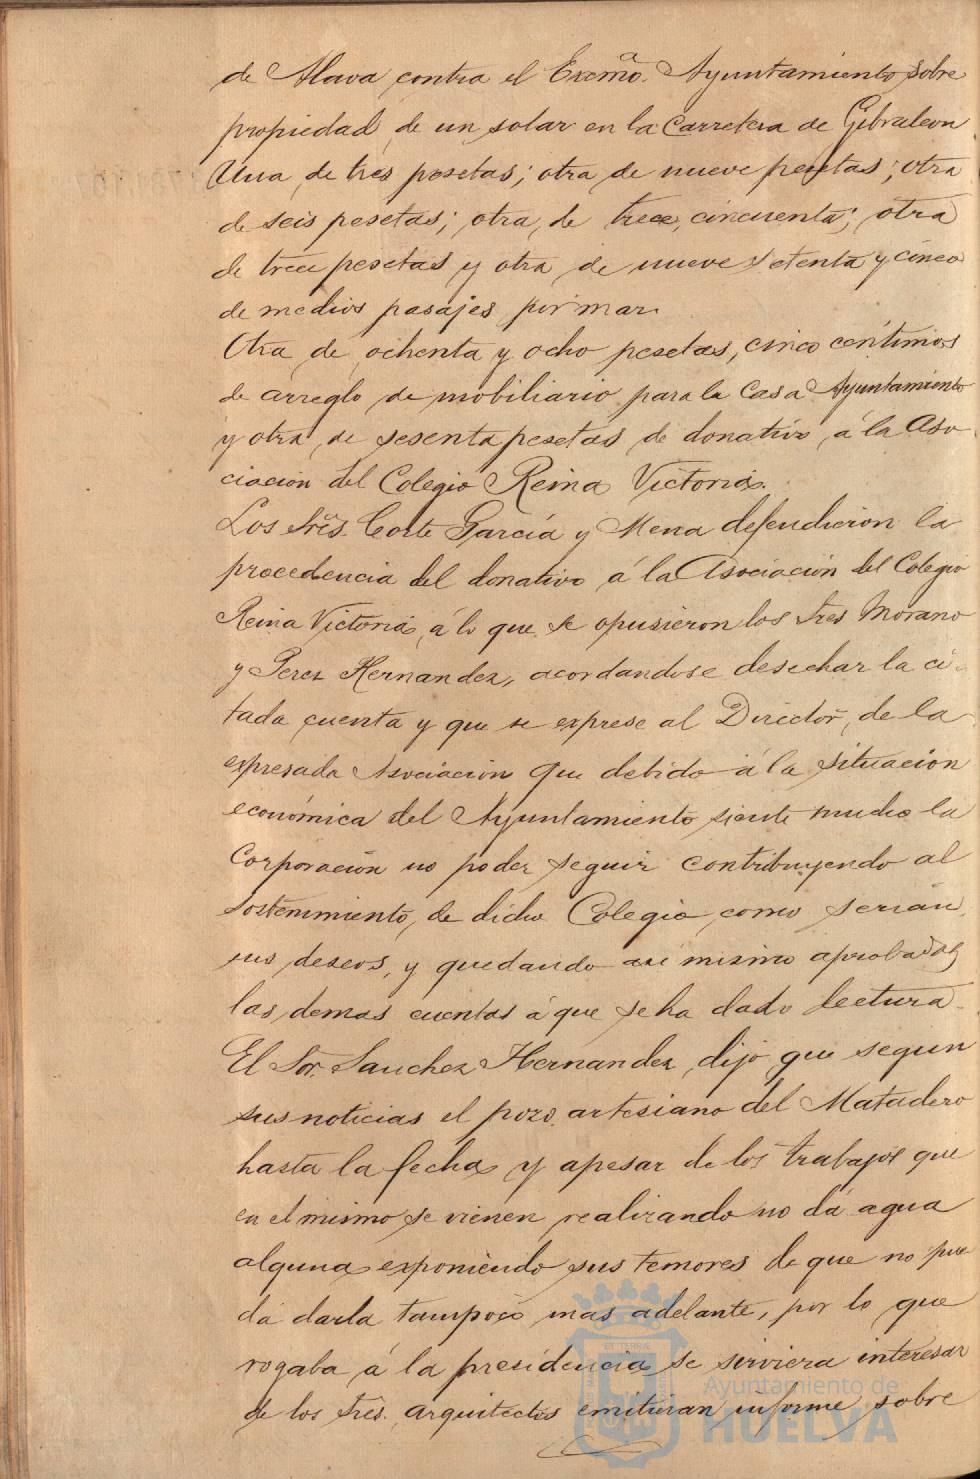 de Alava contra el Excmo. Ayuntamiento sobre
propiedad de un solar en la Carretera de Gibraleon
Una de tres pesetas; otra de nueve pesetas; otra
de seis pesetas; otra de trece, cincuenta; otra
de trece pesetas y otra de nueve setenta y cinco
de medios pasajes por mar.
Otra de ochenta y ocho pesetas, cinco centimos
de arreglo de mobiliario para la Casa Ayuntamiento
y otra de sesenta pesetas de donativo á la Aso-
ciacion del Colegio Reina Victoria.
Los Sres. Corte García y Mena defendieron la
procedencia del donativo á la Asociación del Colegio
Reina Victoria, á lo que se opusieron los Sres Morano
y Perez Hernandez, acordandose desechar la ci-
tada cuenta y que se exprese al Director de la
expresada Asociación que debido á la situacion
económica del Ayuntamiento siente mucho la
Corporación no poder seguir contribuyendo al
sostenimiento de dicho Colegio como serian
sus deseos, y quedando asi mismo aprobadas
las demas cuentas á que se ha dado lectura.
El Sor. Sanchez Hernandez, dijo que segun
sus noticias el pozo artesiano del Matadero
hasta la fecha y apesar de los trabajos que
en el mismo se vienen realizando no dá agua
alguna exponiendo sus temores de que no pue
da darla tampoco mas adelante, por lo que
rogaba á la presidencia se sirviera interesar
de los Sres. arquitectos emitieran informe sobre
Ayuntamiento de
HUELVA